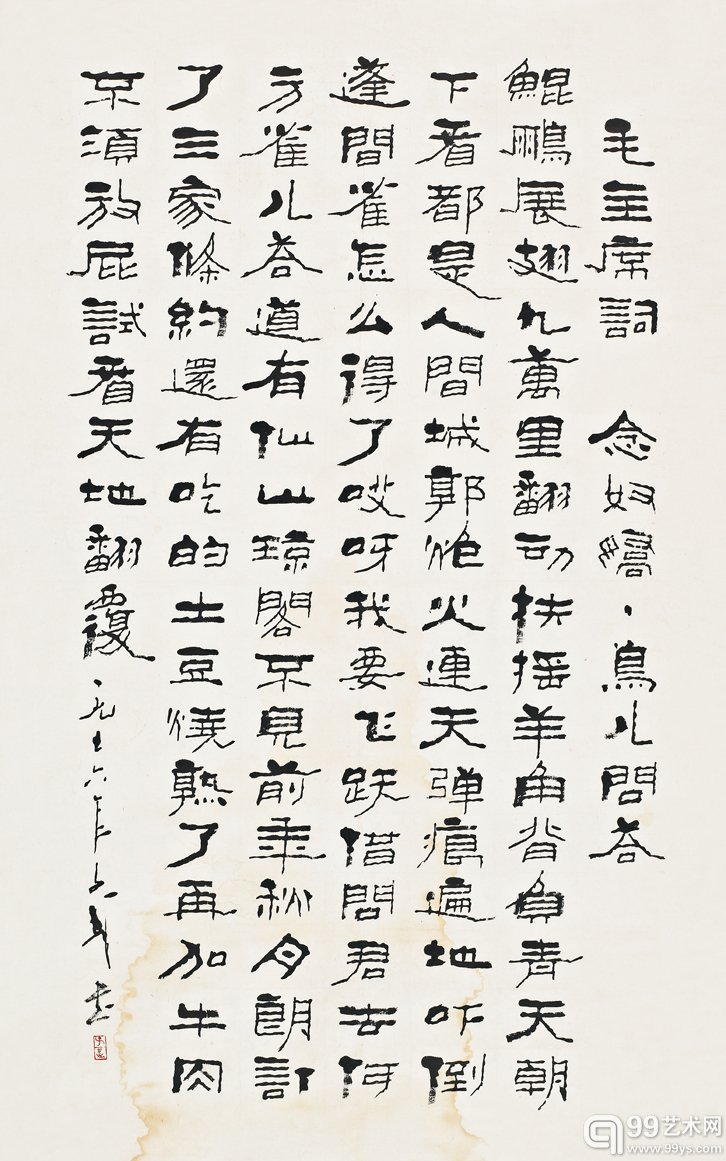 毛主席詞　念奴嬌、鳥儿問荅
鯤鵬展翅九萬里翻动扶摇羊角背負青天朝
下看都是人間城郭炮火連天弹痕遍地吓倒
蓬間雀怎么得了哎呀我要飞跃借問君去何
方雀儿荅道有仙山琼閣不見前年秋月朗訂
了三家條約還有吃的土豆燒熟了再加牛肉
不須放屁試看天地翻覆　一九七六年
99艺术网
www.99ys.com